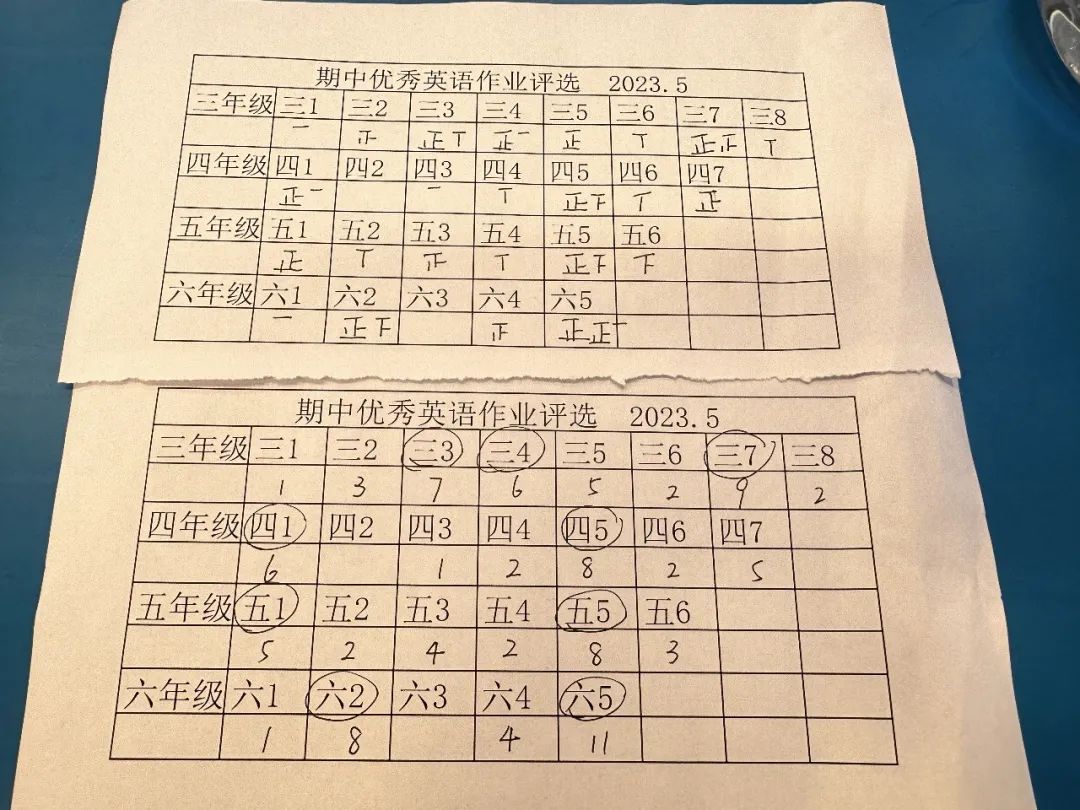 期中优秀英语作业评选 2023.5
三年级 三1 三2 三3 三4 三5 三6 三7 三8
一 正 正丅 正一 正 丅 正正 丅
四年级 四1 四2 四3 四4 四5 四6 四7
正一 一 丅 正下 丅 正
五年级 五1 五2 五3 五4 五5 五6
正 丅 正 丅 正下 下
六年级 六1 六2 六3 六4 六5
一 正下 正 正正一
期中优秀英语作业评选 2023.5
三年级 三1 三2 三3 三4 三5 三6 三7 三8
1 3 7 6 5 2 9 2
四年级 四1 四2 四3 四4 四5 四6 四7
6 1 2 8 2 5
五年级 五1 五2 五3 五4 五5 五6
5 2 4 2 8 3
六年级 六1 六2 六3 六4 六5
1 8 4 11